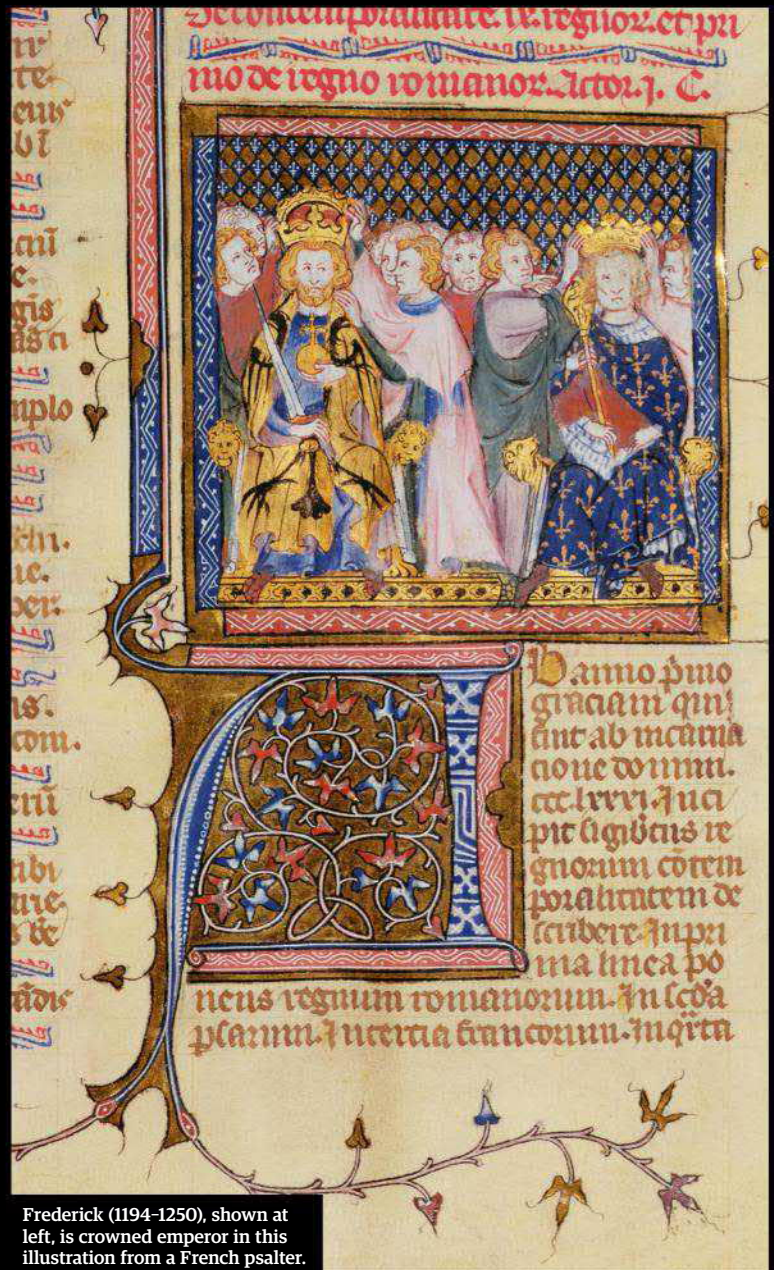 te-
eius
gis
mplo
per:
is.
com.
De contemporalitate. ix. regnor. et pri
mo de regno romanor. Actor. j. C.
anno p̄mo
graciani qui
ab incarna
cione domini.
ccc.lxxxi. Inci
pit sigib̄tus re
gnorum cōtem
poralitatem de
scribere. In pri
ma linea po
nens regnum romanorum. In scd̄a
psarum. In tercia francorum. In qr̄ta
Frederick (1194–1250), shown at
left, is crowned emperor in this
illustration from a French psalter.